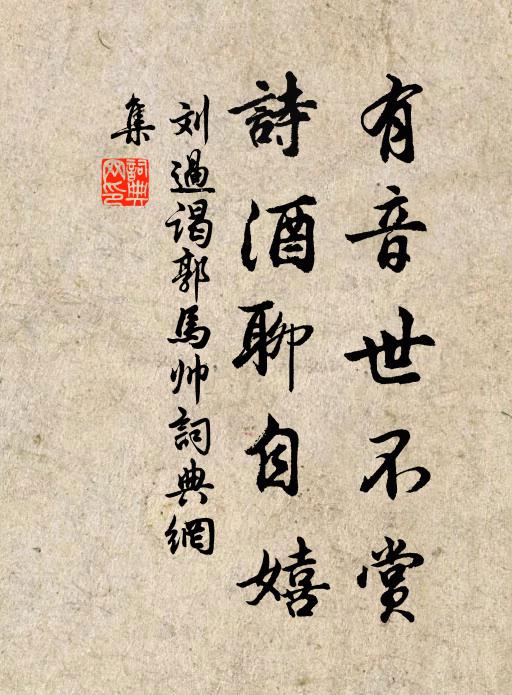 有音世不赏
詩酒聊自嬉
刘過谒郭馬帅詞典網
集
詞典網印